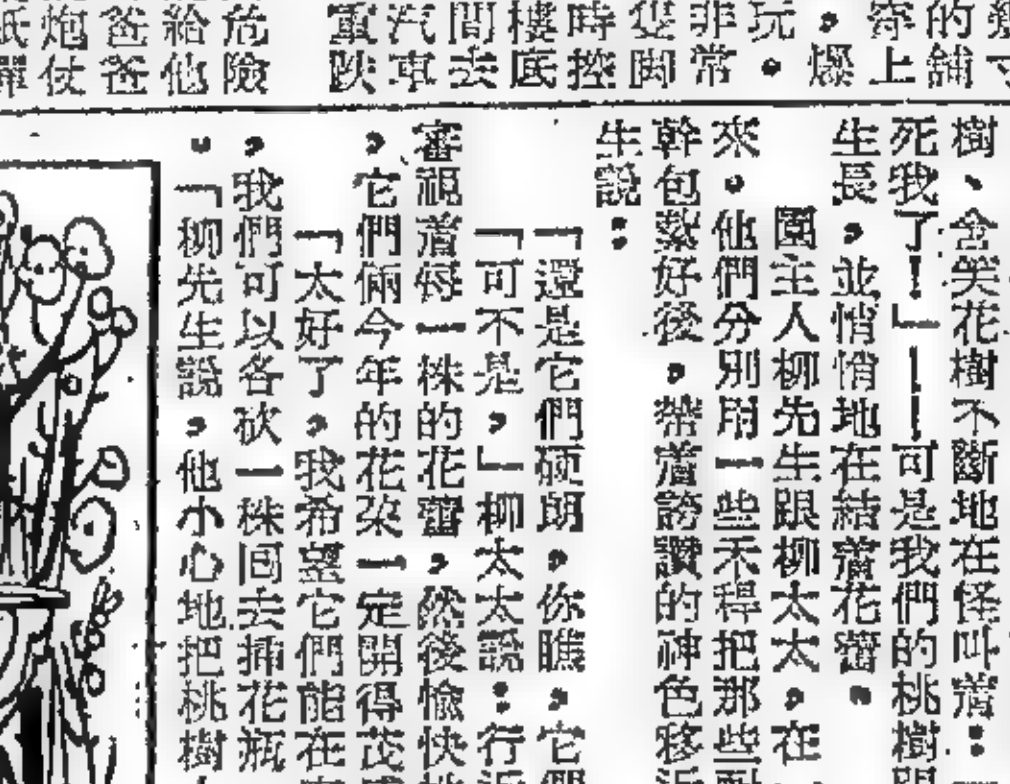 的上舖
穿
，爆
玩。
非常
隻脚
時控
樓底
間去
汽車
重
危險
給他
爸爸
炮仗
樹、含笑花樹不斷地在怪叫着：
死我了！」——可是我們的桃樹
生長，並悄悄地在結着花蕾。
園主人柳先生跟柳太太，在
來。他們分別用一些禾稈把那些
幹包紮好後，帶着誇讚的神色移近
生說：
「還是它們硬朗，你瞧，它們
「可不是，」柳太太說：行近
審視着每一株的花蕾，然後愉快地
，它們倆今年的花朶一定開得茂盛
「太好了，我希望它們能在
，我們可以各砍一株回去插花瓶
。「柳先生說，他小心地把桃樹